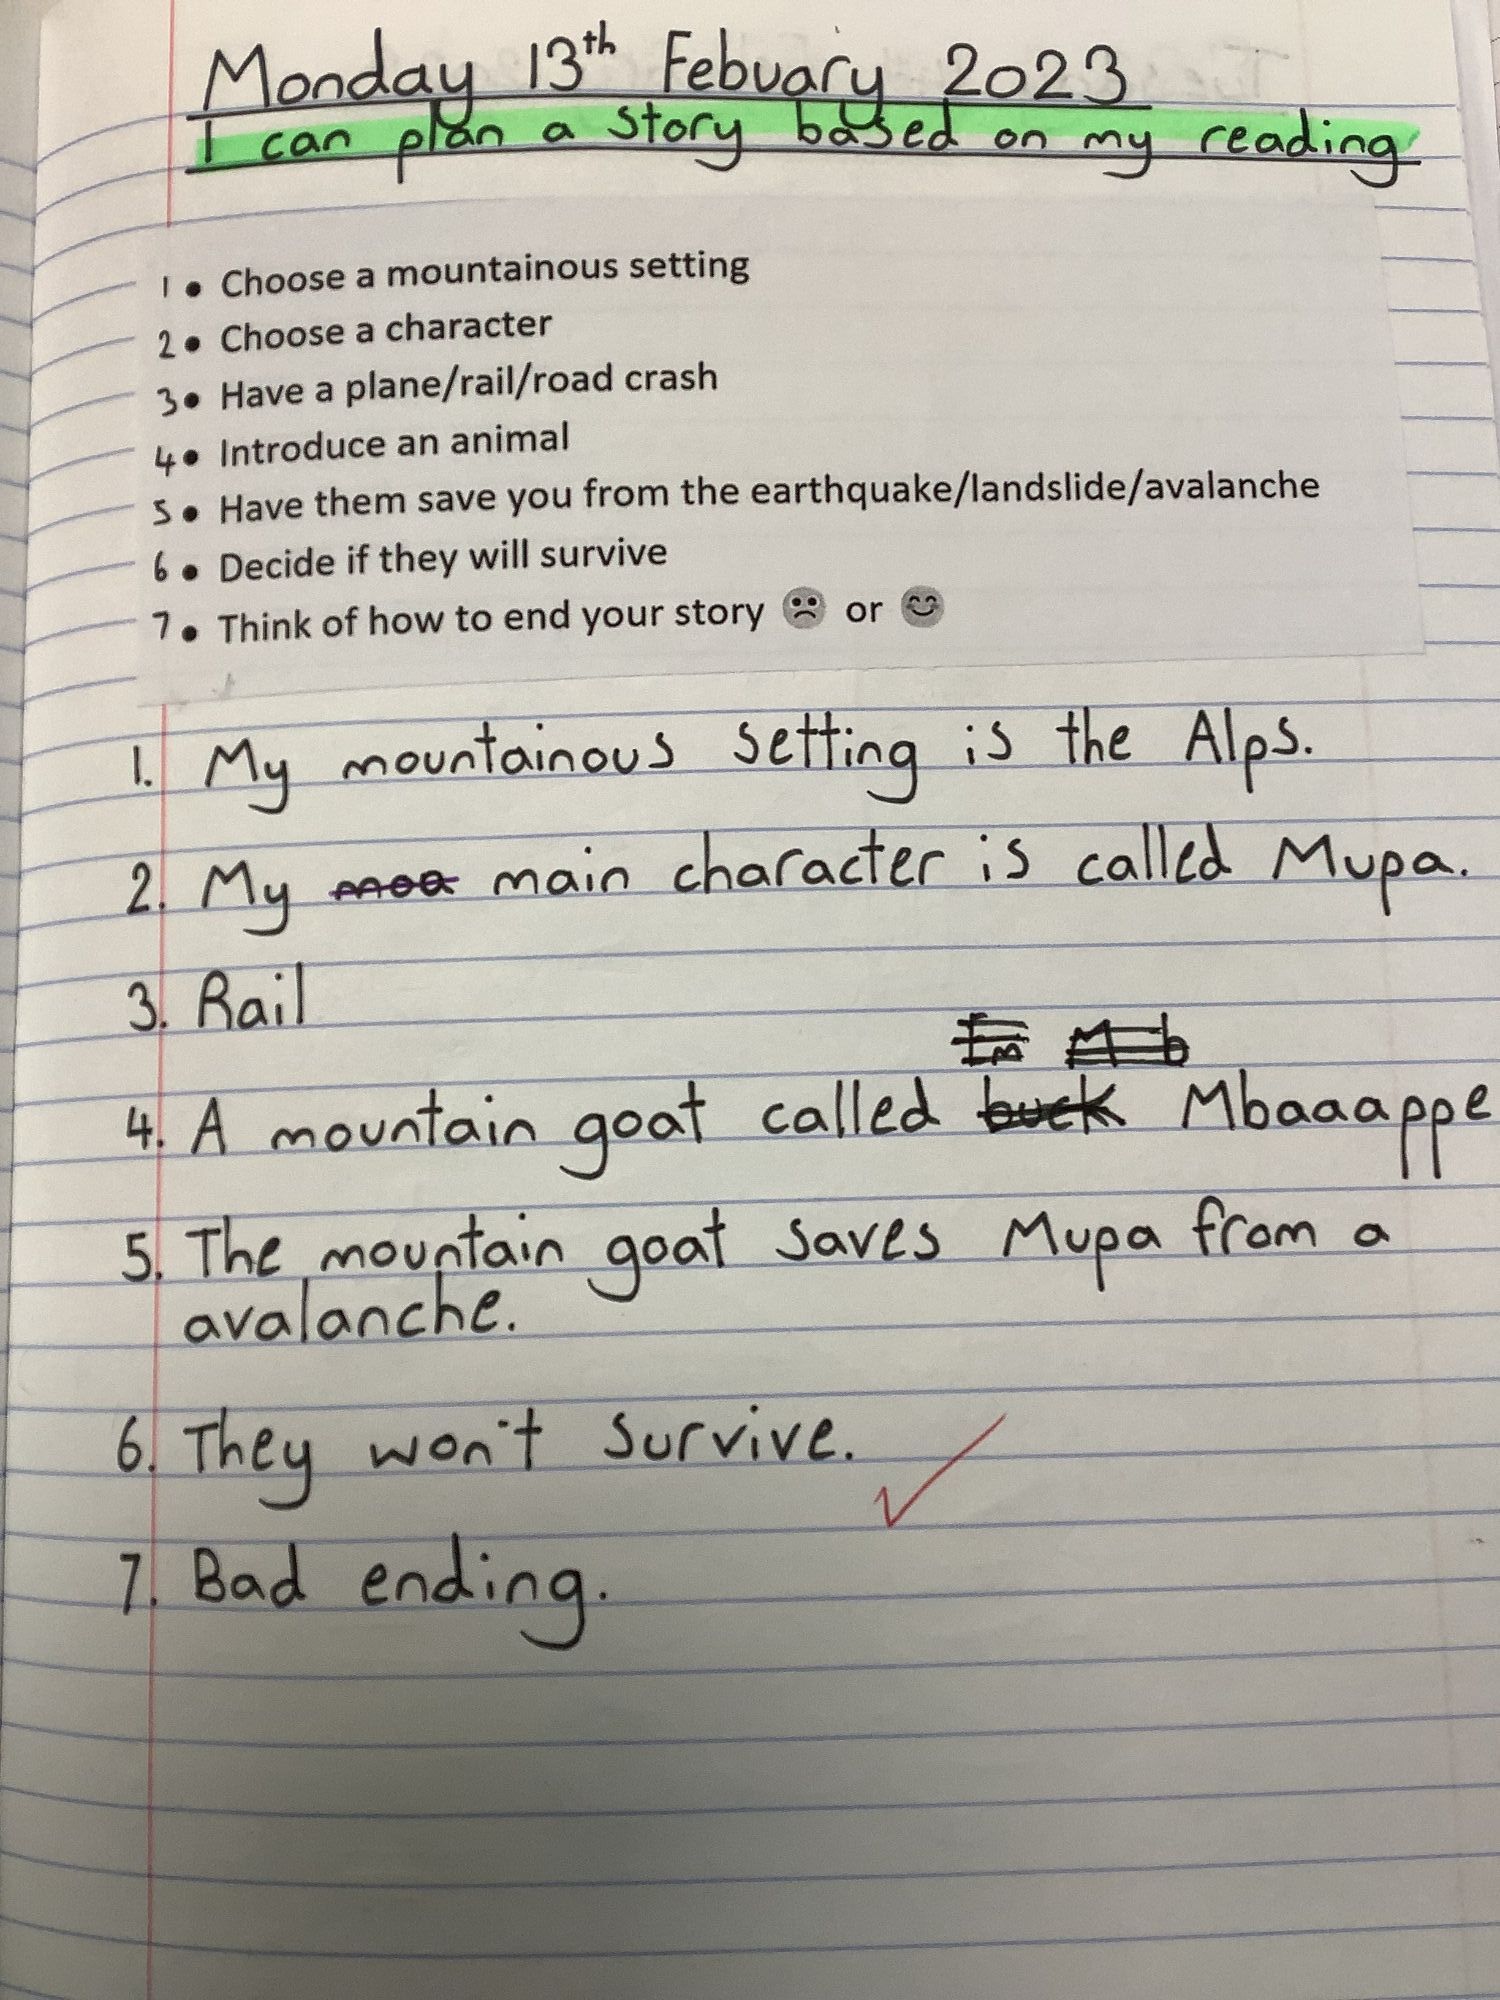 Monday 13th Febuary 2023
I can plan a story based on my reading
1 • Choose a mountainous setting
2 • Choose a character
3 • Have a plane/rail/road crash
4 • Introduce an animal
5 • Have them save you from the earthquake/landslide/avalanche
6 • Decide if they will survive
7 • Think of how to end your story ☹ or 😊
1. My mountainous setting is the Alps.
2. My moa main character is called Mupa.
3. Rail
4. A mountain goat called buck Mbaaappe
5. The mountain goat saves Mupa from a
avalanche.
6. They won't survive.
7. Bad ending.